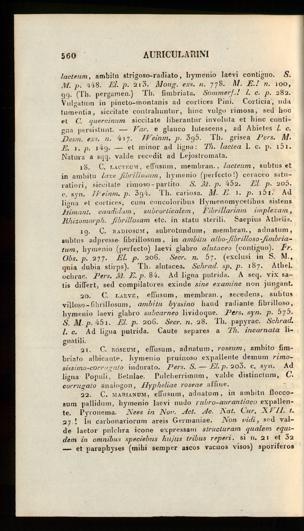 560 AURICULARINI
lacteum, ambitu strigoso-radiato, hymenio laevi contiguo. S.
M. p. 448. El. p. 213. Moug. exs. n. 778. M. E.! n. 100,
99. (Th. pergamen.) Th. fimbriata. Sommerf.! l. c. p. 282.
Vulgatum in pineto-montanis ad cortices Pini. Corticia, uda
tumentia, siccitate contrahuntur, hinc vulgo rimosa, sed hoc
et C. quercinum siccitate liberantur involuta et hinc conti-
gua persistunt. — Var. e glauco lutescens, ad Abietes l. c.
Desm. exs. n. 417. Weinm. p. 395. Th. grisea Pers. M.
E. 1. p. 149. — et minor ad ligna: Th. lactea l. c. p. 151.
Natura a sqq. valde recedit ad Lejostromata.
18. C. LACTEUM, effusum, membran., lacteum, subtus et
in ambitu laxe fibrillosum, hymenio (perfecto!) ceraceo satu-
ratiori, siccitate rimoso-partito. S. M. p. 452. El. p. 205.
c. syn. Weinm. p. 394. Th. cariosa. M. E. 1. p. 151.! Ad
ligna et cortices, cum concoloribus Hymenomycetibus sistens
Himant. candidam, subcorticalem, Fibrillariam implexam,
Rhizomorph. fibrillosam etc. in statu sterili. Saepius Athelia.
19. C. RADIOSUM, subrotundum, membran., adnatum,
subtus adpresse fibrillosum, in ambitu albo-fibrilloso-fimbria-
tum, hymenio (perfecto) laevi glabro alutaceo (contiguo). Fr.
Obs. p. 277. El. p. 206. Secr. n. 57. (exclusi in S. M.,
quia dubia stirps). Th. alutacea. Schrad. sp. p. 187. Athel.
ochrac. Pers. M. E. p. 84. Ad ligna putrida. A seq. vix sa-
tis differt, sed compilatores exinde sine examine non jungant.
20. C. LAEVE, effusum, membran., secedens, subtus
villoso-fibrillosum, ambitu byssino haud radiante fibrilloso,
hymenio laevi glabro subcarneo lividoque. Pers. syn. p. 575.
S. M. p. 451. El. p. 206. Secr. n. 28. Th. papyrac. Schrad.
l. c. Ad ligna putrida. Caute separes a Th. incarnata li-
gnatili.
21. C. ROSEUM, effusum, adnatum, roseum, ambitu fim-
briato albicante, hymenio pruinoso expallente demum rimo-
sissimo-corrugato indurato. Pers. S. — El. p. 203. c. syn. Ad
ligna Populi, Betulae. Pulcherrimum, valde distinctum, C.
corrugato analogon, Hypheliae roseae affine.
22. C. MARIANUM, effusum, adnatum, in ambitu flocco-
sum pallidum, hymenio laevi nudo rubro-aurantiaco expallen-
te. Pyronema. Nees in Nov. Act. Ac. Nat. Cur. XVII. t.
27 ! In carbonariorum areis Germaniae. Non vidi, sed val-
de laetor pulchra icone expressam structuram qualem equi-
dem in omnibus speciebus hujus tribus reperi. si n. 21 et 32
— et paraphyses (mihi semper ascos vacuos visos) sporiferos